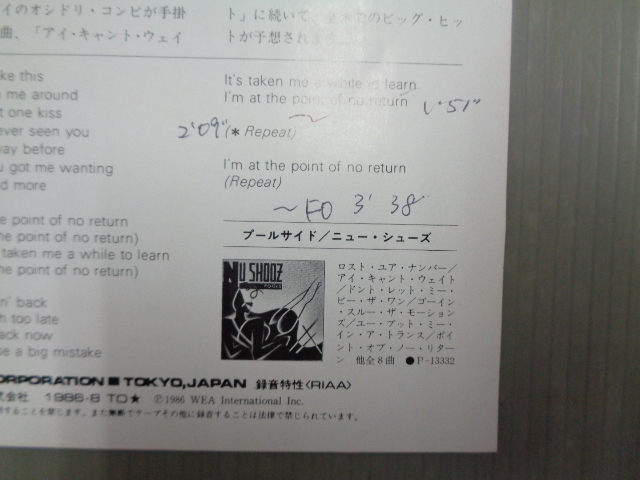 イのオシドリ・コンビが手掛
曲、「アイ・キャント・ウェイ
ト」に続いて、全米でのビッグ・ヒッ
トが予想されます。
ke this
me around
t one kiss
ever seen you
way before
u got me wanting
d more
e point of no return
he point of no return)
taken me a while to learn
he point of no return)
n' back
h too late
ack now
e a big mistake
It's taken me a while to learn
I'm at the point of no return
1'51"
2'09"
(* Repeat)
I'm at the point of no return
(Repeat)
〜FO 3'38"
プールサイド/ニュー・シューズ
NU SHOOZ
POOLSIDE
ロスト・ユア・ナンバー/
アイ・キャント・ウェイト
/ドント・レット・ミー・
ビー・ザ・ワン/ゴーイン・
スルー・ザ・モーション
ズ/ユー・プット・ミー・
イン・ア・トランス/ポイ
ント・オブ・ノー・リター
ン 他全8曲 ●P-13332
ORPORATION■TOKYO,JAPAN 録音特性〈RIAA〉
式会社 1986-8 TO★ ©1986 WEA International Inc.
することを禁じます。また無断でテープその他に録音することは法律で禁じられています。